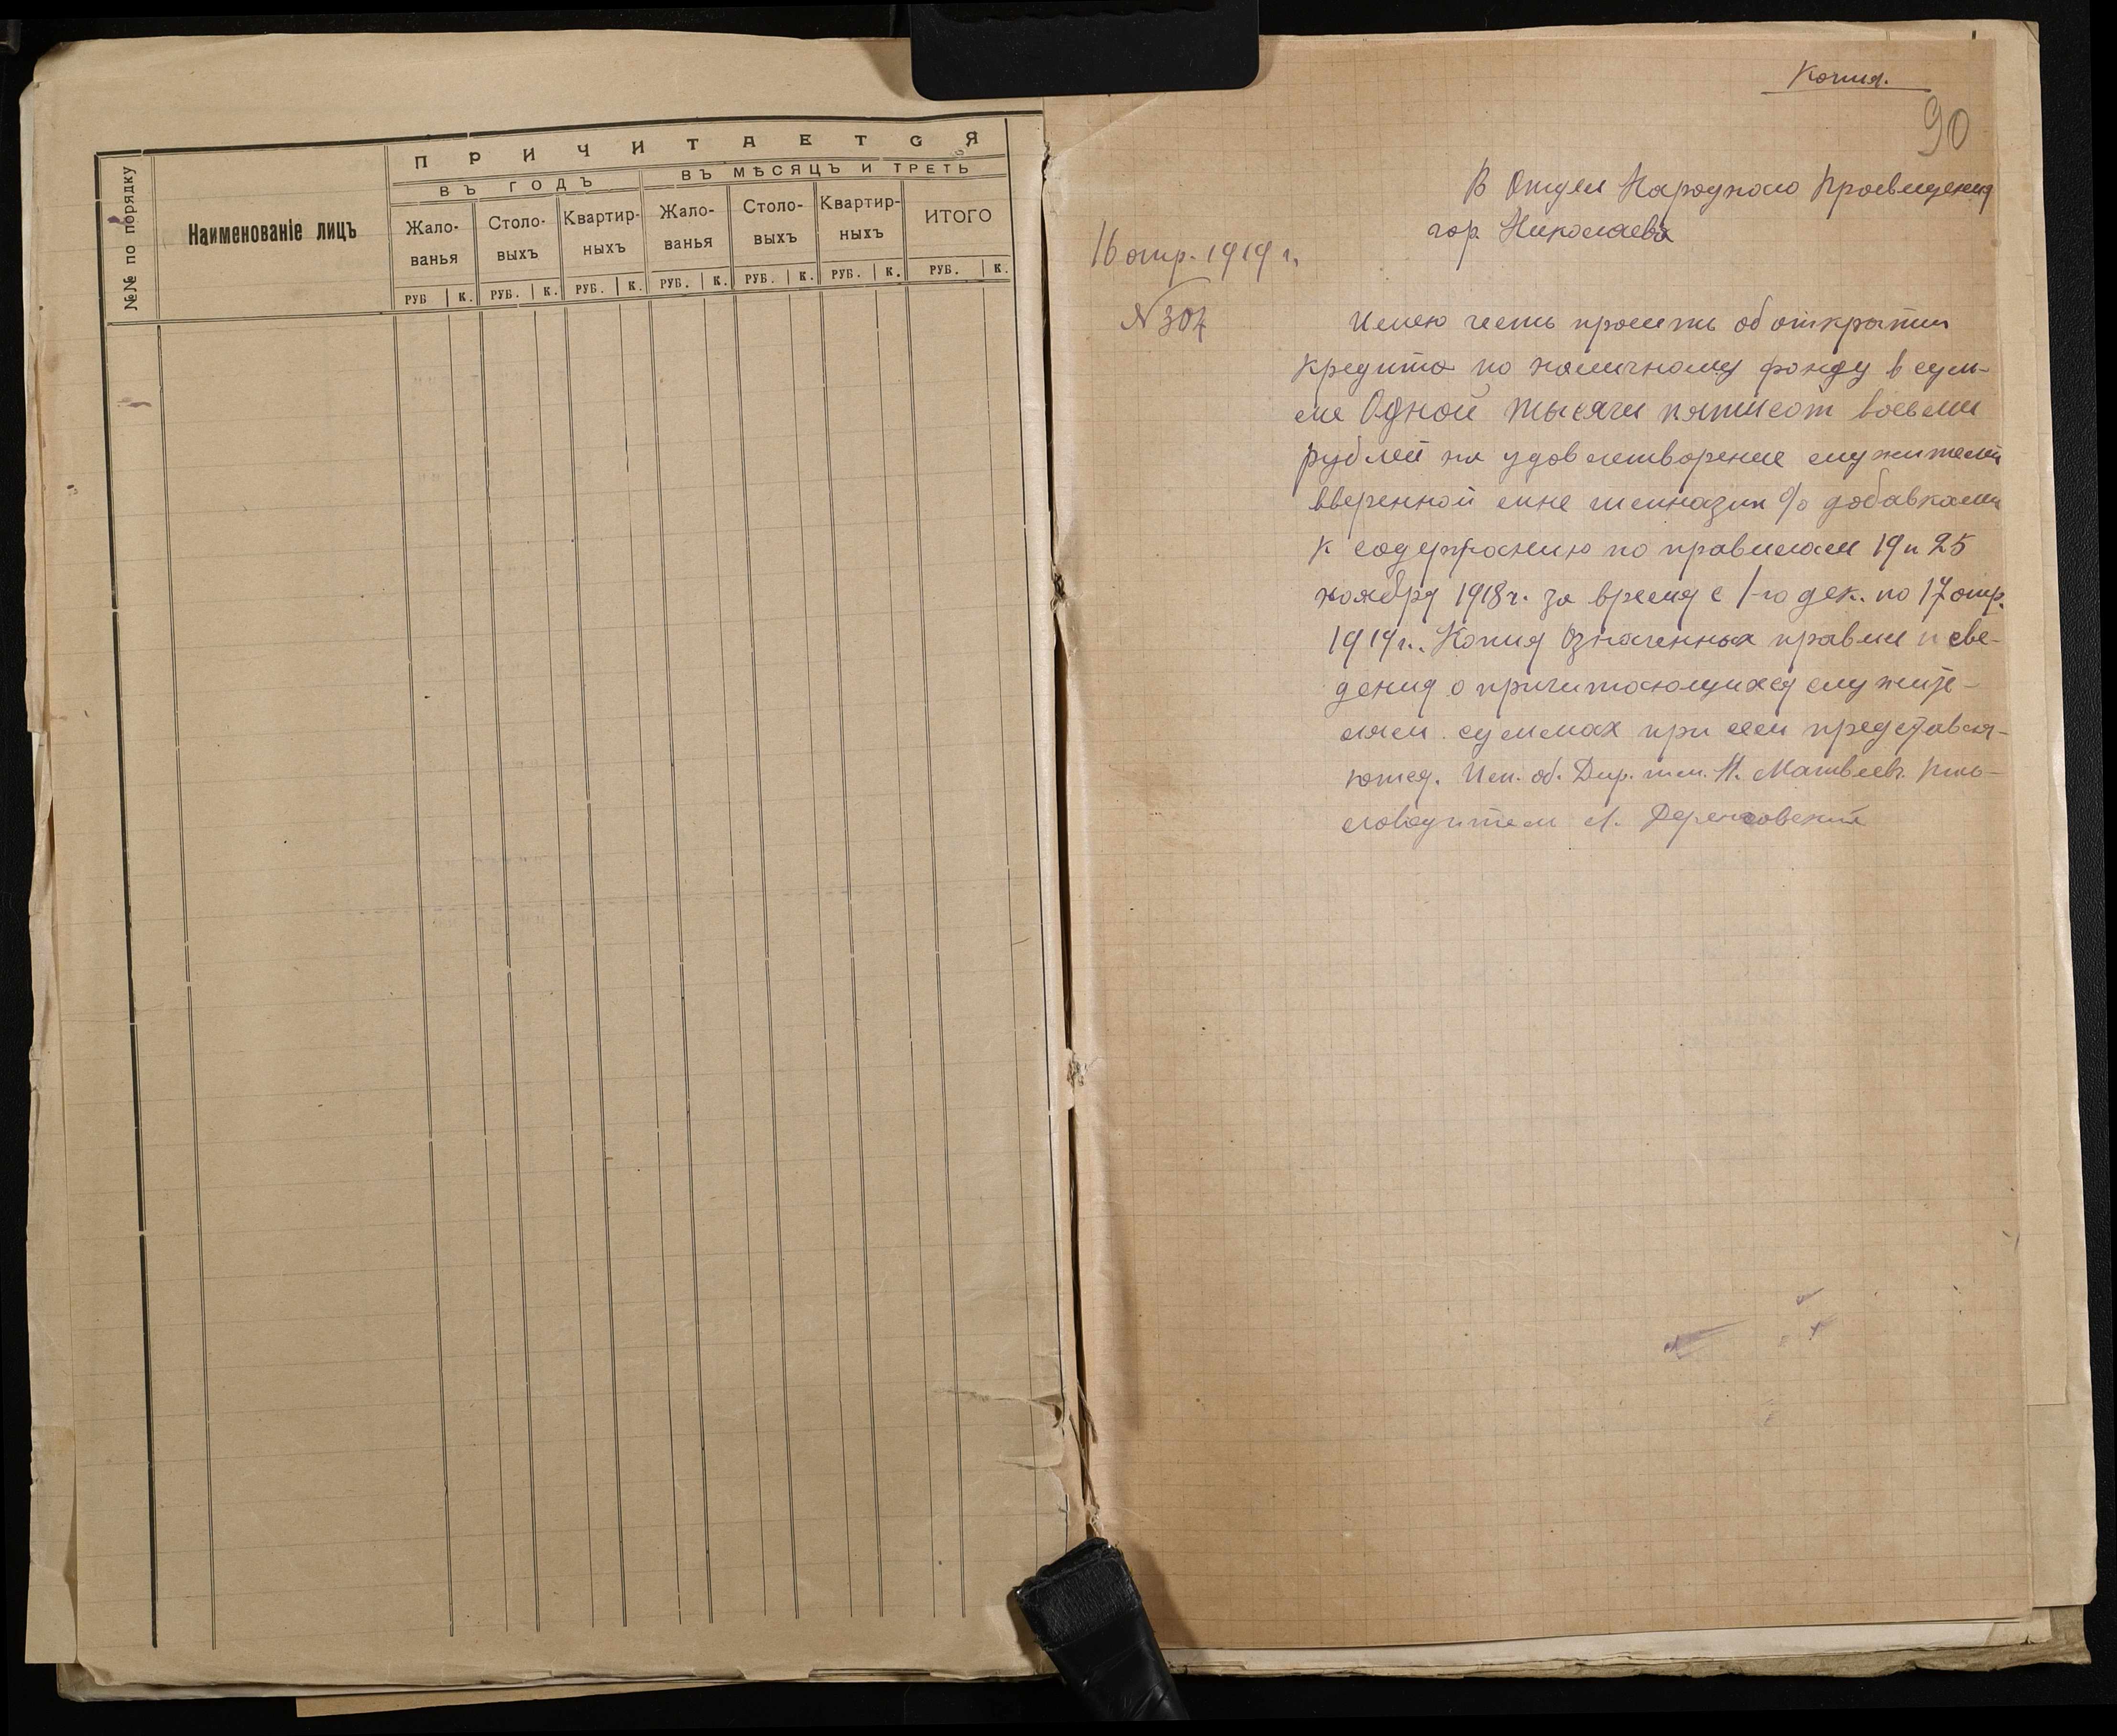 №№ по порядку
Наименованіе лицъ
ПРИЧИТАЕТСЯ
ВЪ ГОДЪ
ВЪ МѢСЯЦЪ И ТРЕТЬ
Жало-
ванья
Столо-
выхъ
Квартир-
ныхъ
Жало-
ванья
Столо-
выхъ
Квартир-
ныхъ
ИТОГО
РУБ К. РУБ. К. РУБ. К. РУБ. К. РУБ. К. РУБ. К. РУБ. К.
Копия.
90
В Отдел Народного Просвещения
гор. Николаева
16 апр. 1919 г.
N 307
Имею честь просить об открытии
кредита по наличному фонду в сум-
ме Одной тысячи пятисот восьми
рублей на удовлетворение служителей
вверенной мне гимназии % добавками
к содержанию по правилам 19 и 25
ноября 1918 г. за время с 1-го дек. по 17 апр.
1919 г. Копия означенных правил и све-
дения о причитающихся служите-
лям суммах при сем представля-
ются. Исп. об. Дир. гим. Матвеев. Пись-
моводитель